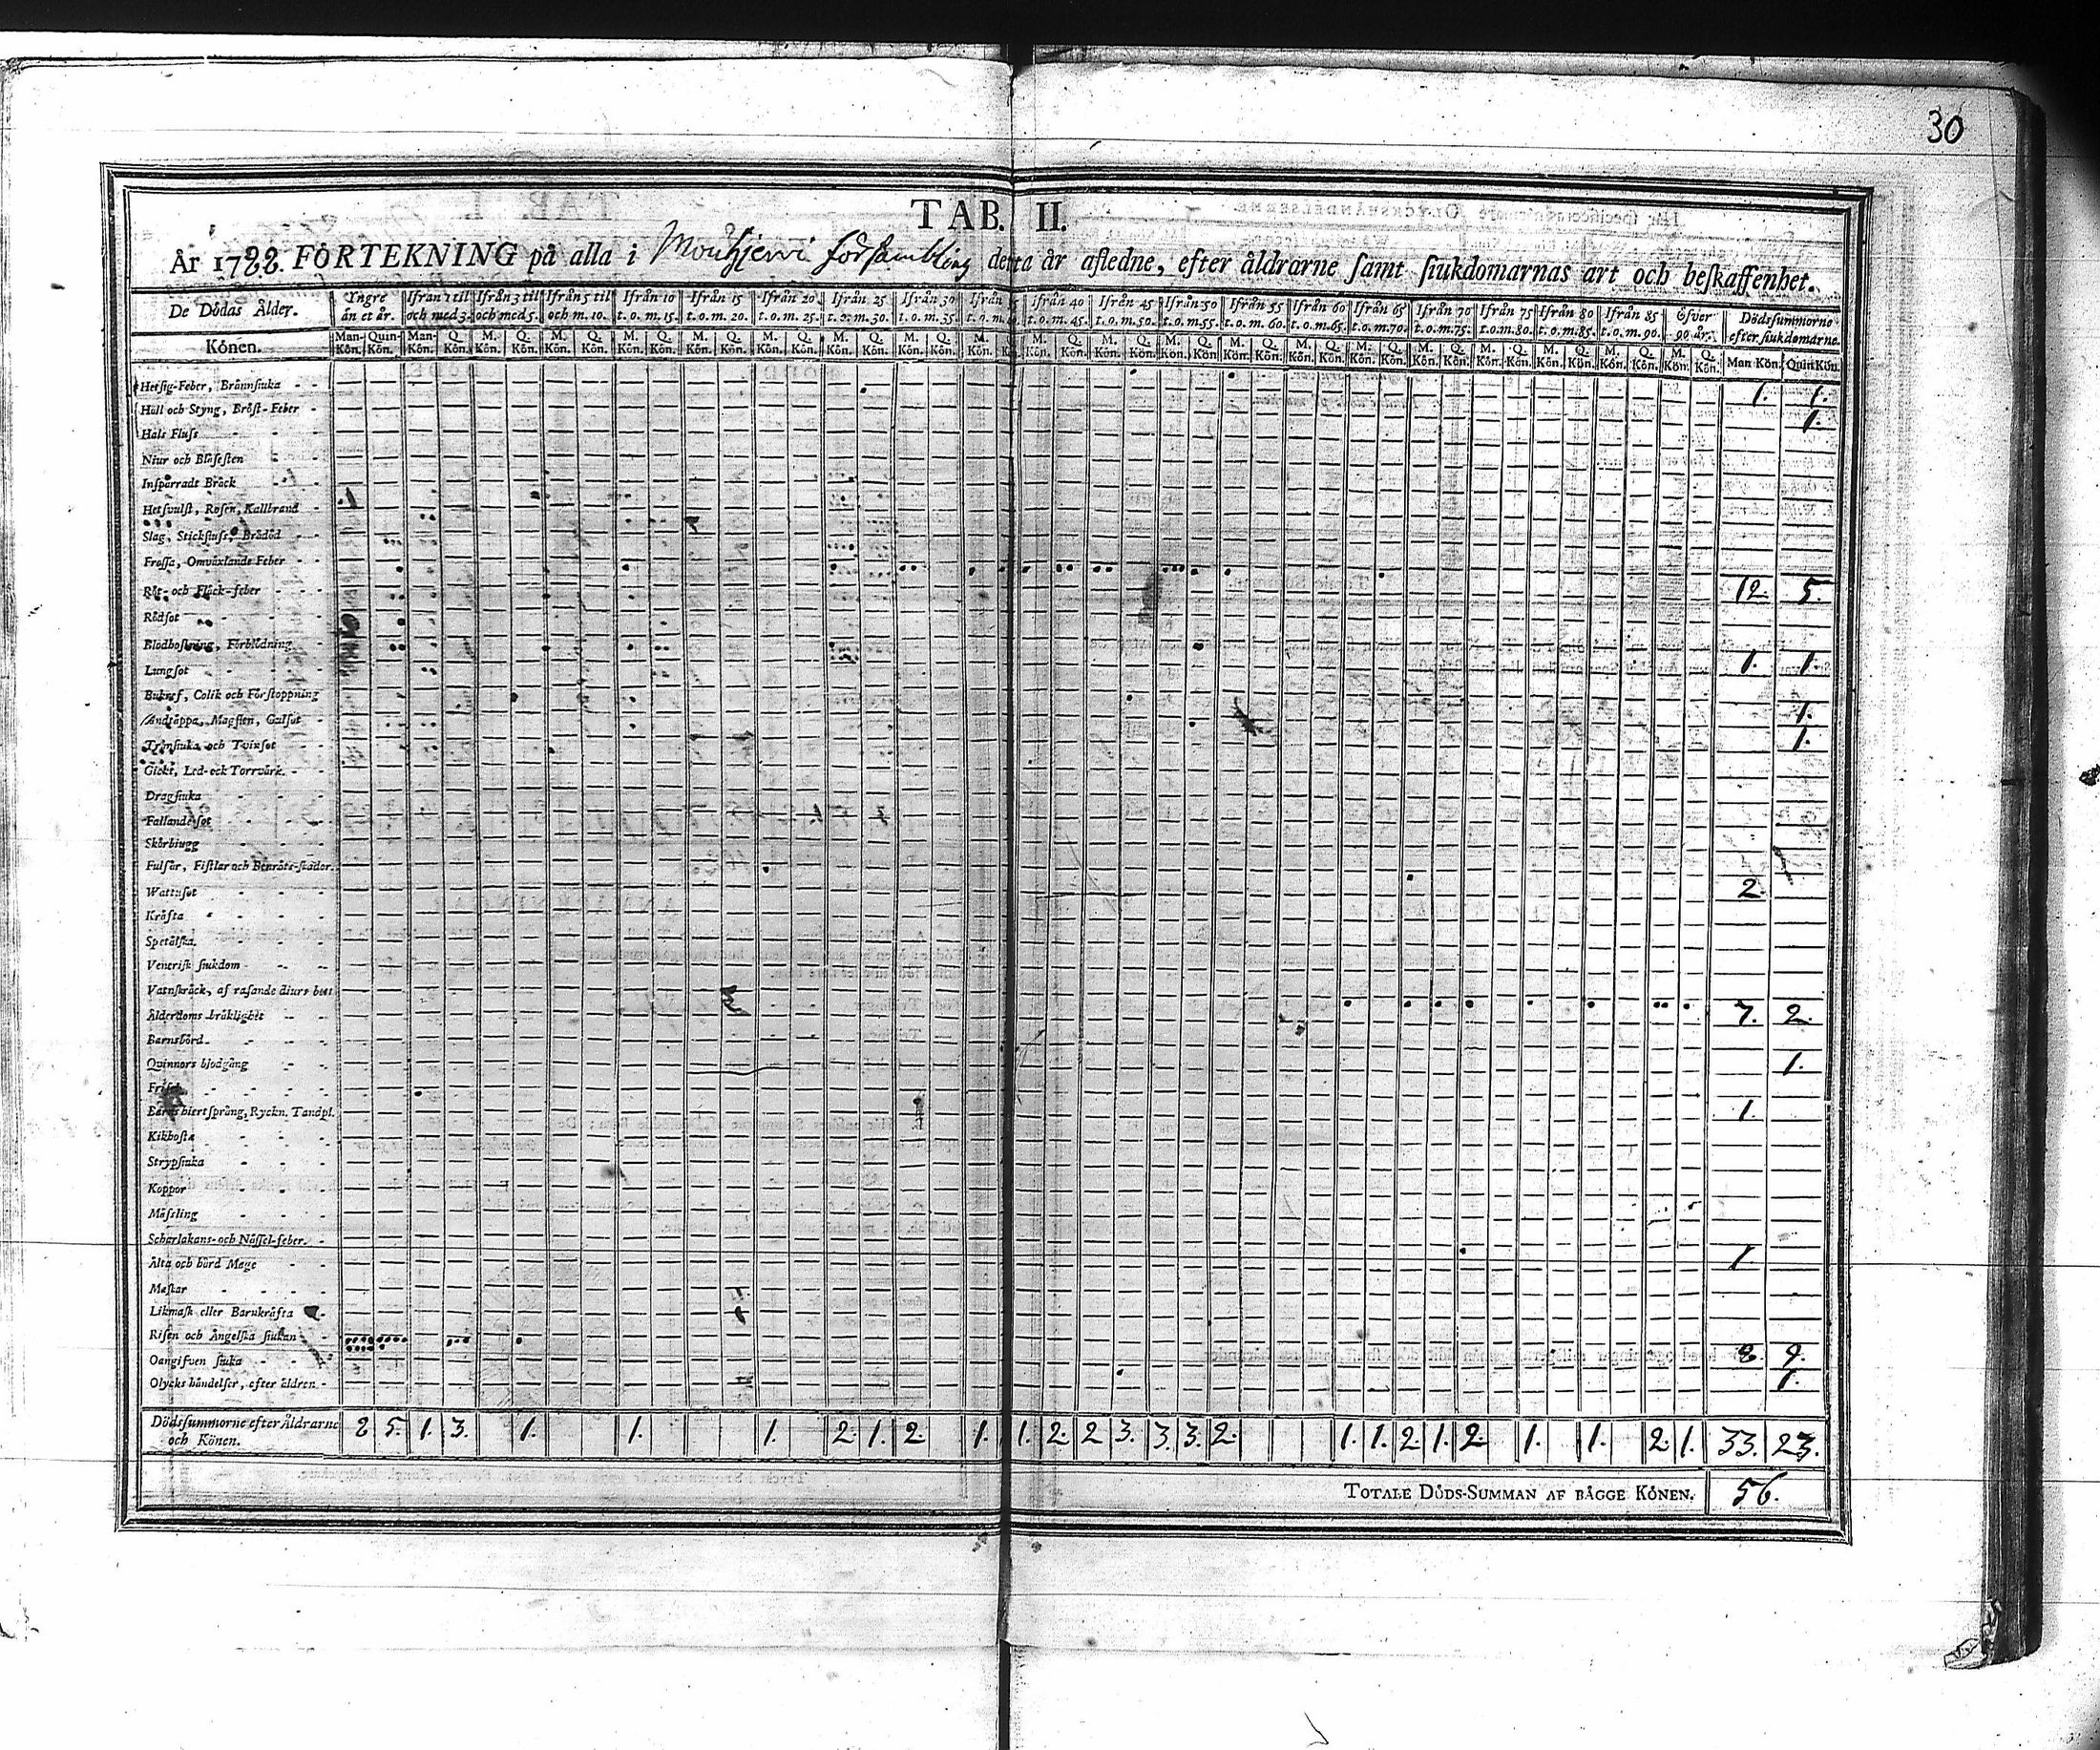 30
TAB. II.
År 1788. FÖRTEKNING på alla i Mouhjervi försambling detta år afledne, efter åldrarne samt siukdomarnas art och beskaffenhet.
De Dödas Ålder. Yngre än et år. Ifrån 1 til och med 3. Ifrån 3 til och med 5. Ifrån 5 til och m. 10. Ifrån 10 t. o. m. 15. Ifrån 15 t. o. m. 20. Ifrån 20 t. o. m. 25. Ifrån 25 t. o. m. 30. Ifrån 30 t. o. m. 35. Ifrån t. o. m. Ifrån 40 t. o. m. 45. Ifrån 45 t. o. m. 50. Ifrån 50 t. o. m. 55. Ifrån 55 t. o. m. 60. Ifrån 60 t. o. m. 65. Ifrån 65 t. o. m. 70. Ifrån 70 t. o. m. 75. Ifrån 75 t. o. m. 80. Ifrån 80 t. o. m. 85. Ifrån 85 t. o. m. 90. Öfver 90 år. Dödssummorne efter siukdomarne.
Könen. Man-Kön. Quin-Kön. Man-Kön. Q. Kön. M. Kön. Q. Kön. M. Kön. Q. Kön. M. Kön. Q. Kön. M. Kön. Q. Kön. M. Kön. Q. Kön. M. Kön. Q. Kön. M. Kön. Q. Kön. M. Kön. M. Kön. Q. Kön. M. Kön. Q. Kön. M. Kön. Q. Kön. M. Kön. Q. Kön. M. Kön. Q. Kön. M. Kön. Q. Kön. M. Kön. Q. Kön. M. Kön. Q. Kön. M. Kön. Q. Kön. M. Kön. Q. Kön. M. Kön. Q. Kön. Man Kön. Quin Kön.
Hetsig-Feber, Brännsiuka 1. 1.
Håll och Styng, Bröst-Feber 1.
Hals Fluss
Niur och Blåsesten
Insparradt Bråck
Hetsvulst, Rosen, Kallbrand
Slag, Stickfluss, Brådöd
Frossa, Omväxlande Feber
Röt- och Fläck-feber 12. 5.
Rödsot
Blodhostning, Förblödning
Lungsot 1. 1.
Bukref, Colik och Förstoppning
Andtäppa, Magsten, Gulsot 1.
Tränsiuka och Tvinsot 1.
Gickt, Led- och Torrvärk.
Dragsiuka
Fallandesot
Skörbiugg
Fulsår, Fistlar och Benröte-skador.
Wattusot 2.
Kräfta
Spetälska.
Venerisk siukdom
Vatnskräck, af rasande diurs bett
Ålderdoms bräklighet 7. 2.
Barnsbörd
Quinnors blodgång 1.
Frisel
Barns hiertsprång, Ryckn. Tandpl. 1.
Kikhosta
Strypsiuka
Koppor
Mässling
Scharlakans- och Nässel-feber.
Älta och hård Mage 1.
Maskar
Likmask eller Barnkräfta
Risen och Ängelska siukan
Oangifven siuka 8. 9.
Olycks händelser, efter äldren 1.
Dödssummorne efter Åldrarne och Könen. 8 5. 1. 3. 1. 1. 1. 2. 1. 2. 1. 1. 2. 2 3. 3. 3. 2. 1. 1. 2 1. 2. 1. 1. 2 1. 33. 23.
TOTALE DÖDS-SUMMAN AF BÄGGE KÖNEN. 56.